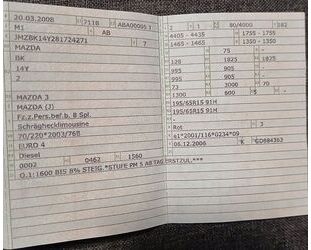 20.03.2008 7118 ABA00095 1
M1 AB
JMZBK14Y281724271 7
MAZDA
BK
14Y
2
MAZDA 3
MAZDA (J)
Fz.z.Pers.bef.b. 8 Spl.
Schräghecklimousine
70/220*2003/76B
EURO 4
Diesel
0002 0462 1560
O.1:1600 BIS 8% STEIG.*STUFE PM 5 AB TAG ERSTZUL.***
2 1 80/4000 182
4405 - 4435 1755 - 1755
1465 - 1465 1330 - 1350
75
128 1825 1825
995 905 -
995 905 - 70
73 3000
1300 600 5 -
195/65R15 91H
195/65R15 91H
-
Rot 3
e1*2001/116*0234*09
06.12.2006 K GD684363